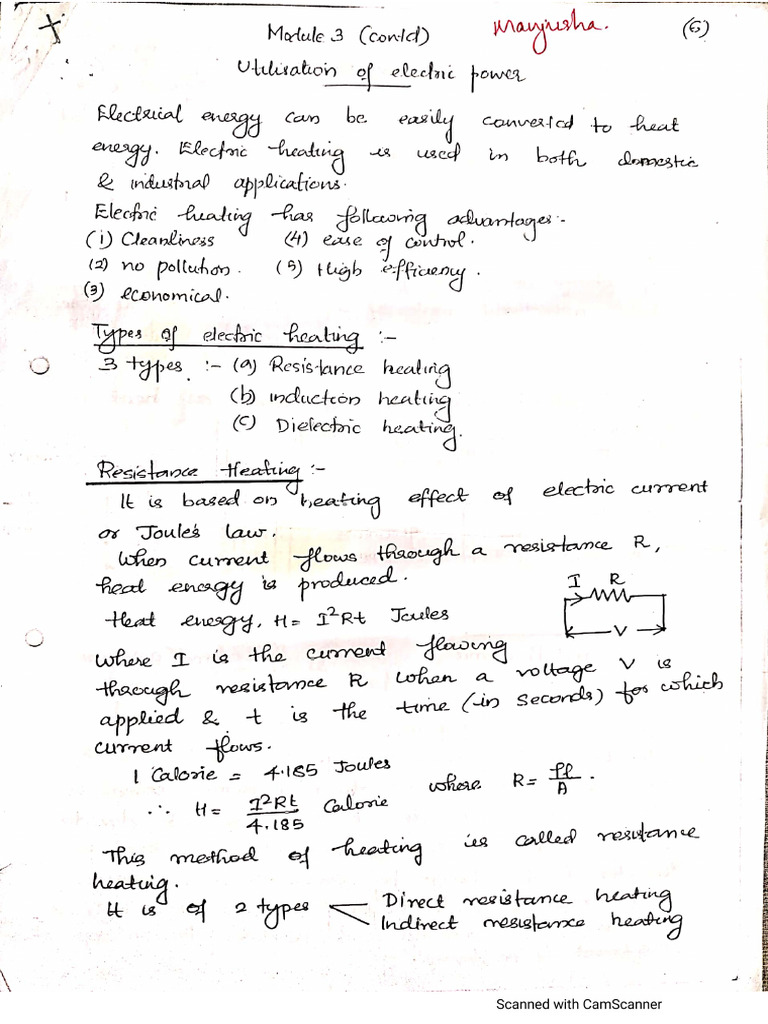 Module 3 (contd) Manjusha. (6)
Utilisation of electric power
Electrical energy can be easily converted to heat
energy. Electric heating is used in both domestic
& industrial applications.
Electric heating has following advantages:-
(1) Cleanliness (4) ease of control.
(2) no pollution. (5) High efficiency.
(3) economical.
Types of electric heating :-
3 types :- (a) Resistance heating
(b) induction heating
(c) Dielectric heating.
Resistance Heating :-
It is based on heating effect of electric current
or Joule's law.
When current flows through a resistance R,
heat energy is produced.
I R
Heat energy, H = I²Rt Joules
V
where I is the current flowing
through resistance R when a voltage V is
applied & t is the time (in seconds) for which
current flows.
1 Calorie = 4.185 Joules
∴ H = I²Rt/4.185 Calorie where R = ρl/A .
This method of heating is called resistance
heating.
It is of 2 types Direct resistance heating
Indirect resistance heating
Scanned with CamScanner